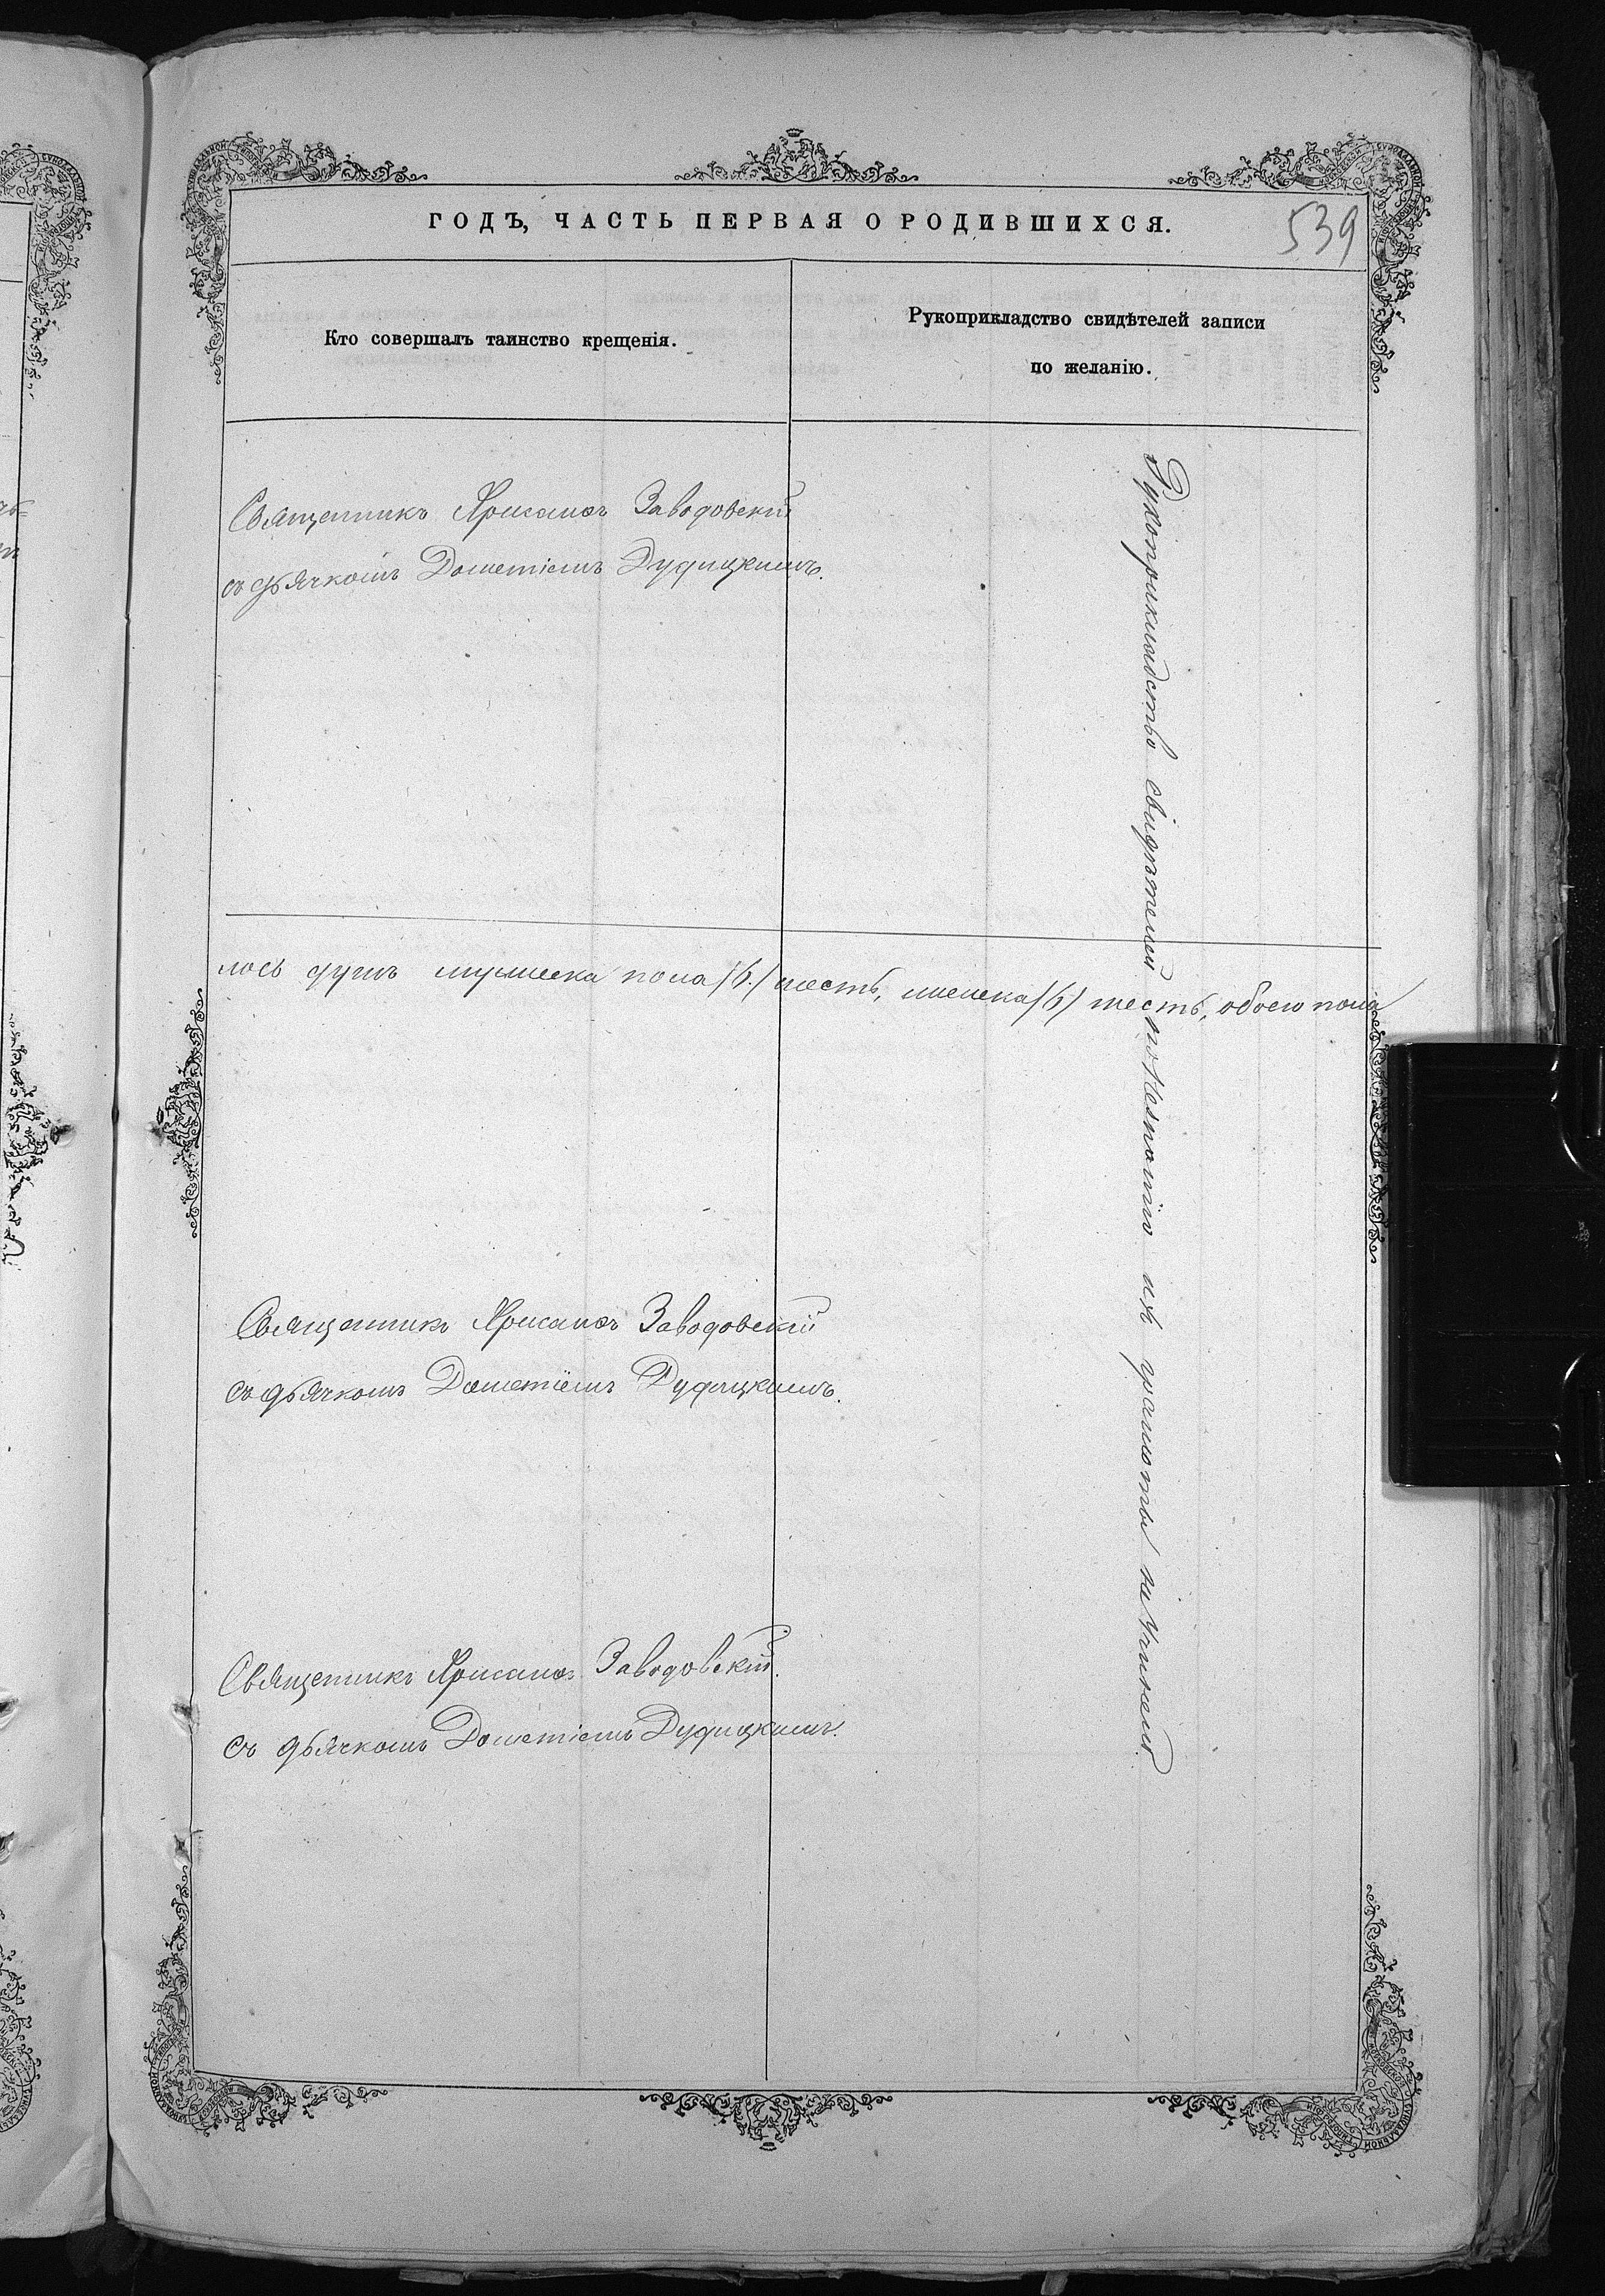 ГОДЪ, ЧАСТЬ ПЕРВАЯ О РОДИВШИХСЯ.
539
Кто совершалъ таинство крещенія.
Рукоприкладство свидѣтелей записи
по желанію.
Священникъ Хрисанѳъ Заводовскій
съ дьячкомъ Дометіемъ Дудицкимъ.
лось душъ мужеска пола /6./ шесть, женска /6/ шесть, обоего пола
Священникъ Хрисанѳъ Заводовскій
съ дьячкомъ Дометіемъ Дудицкимъ.
Священникъ Хрисанѳъ Заводовскій.
съ дьячкомъ Дометіемъ Дудицкимъ.
Рукоприкладство свидѣтелей их грамоты